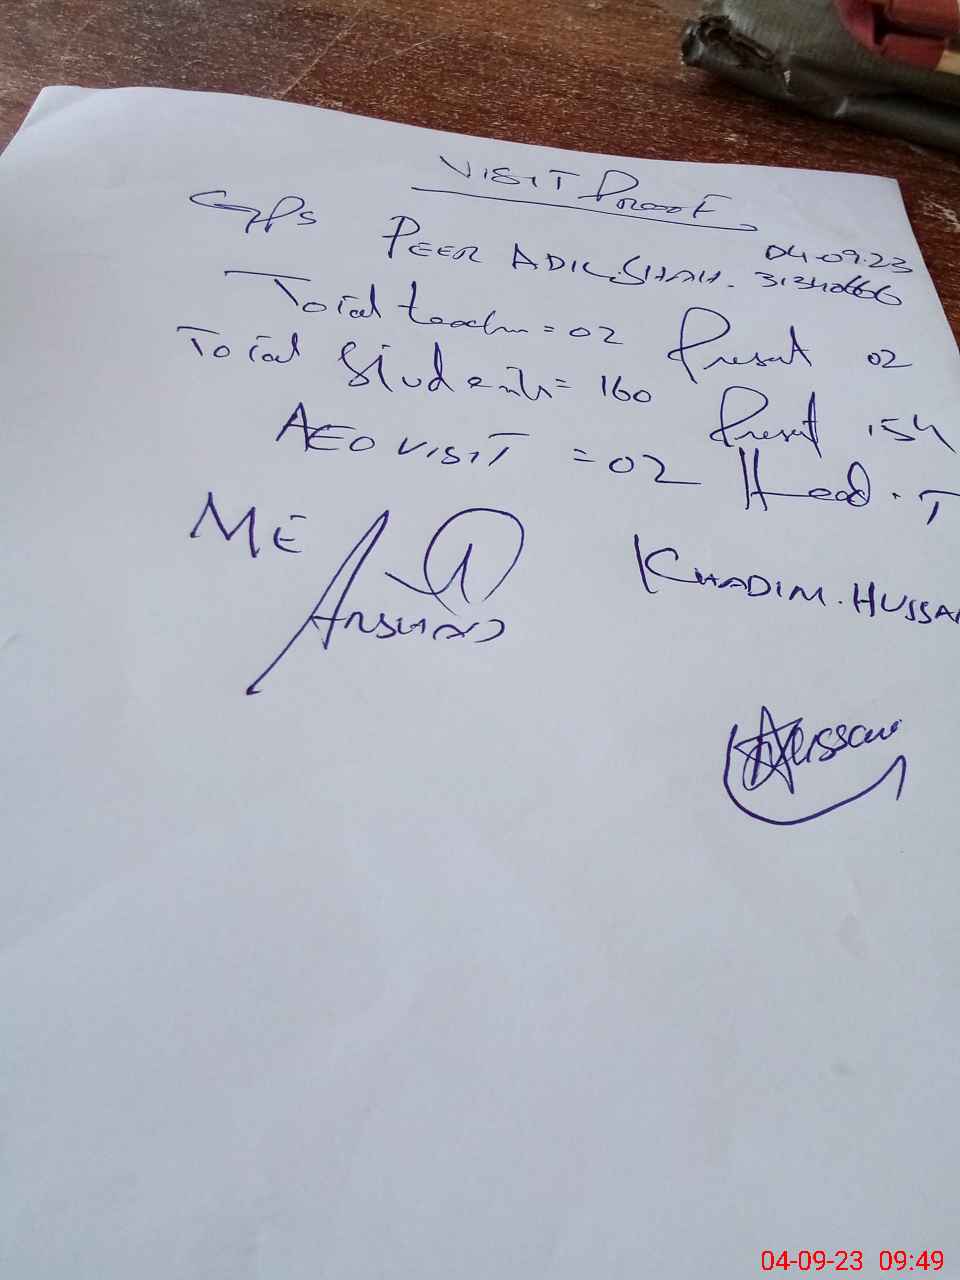 VISIT PROOF
04.09.23
GPS PEER ADIL.SHAH. 31340666
Total teacher = 02 Present 02
Total Students = 160 Present 154
AEO VISIT = 02 Head.T
ME
ARSHAD KHADIM.HUSSAI
Hussain
04-09-23 09:49